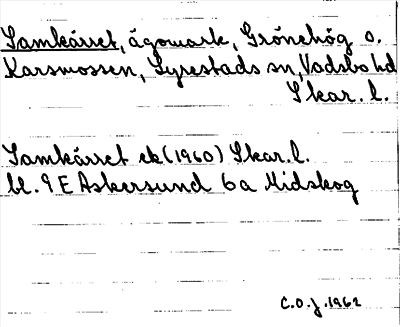 Samkärret, ägomark, Grönehög o.
Karsmossen, Lyrestads sn, Vadsbo hd
Skar. l.
Samkärret ek (1960) Skar. l.
bl. 9 E Askersund 6a Midskog
C.O.J. 1962